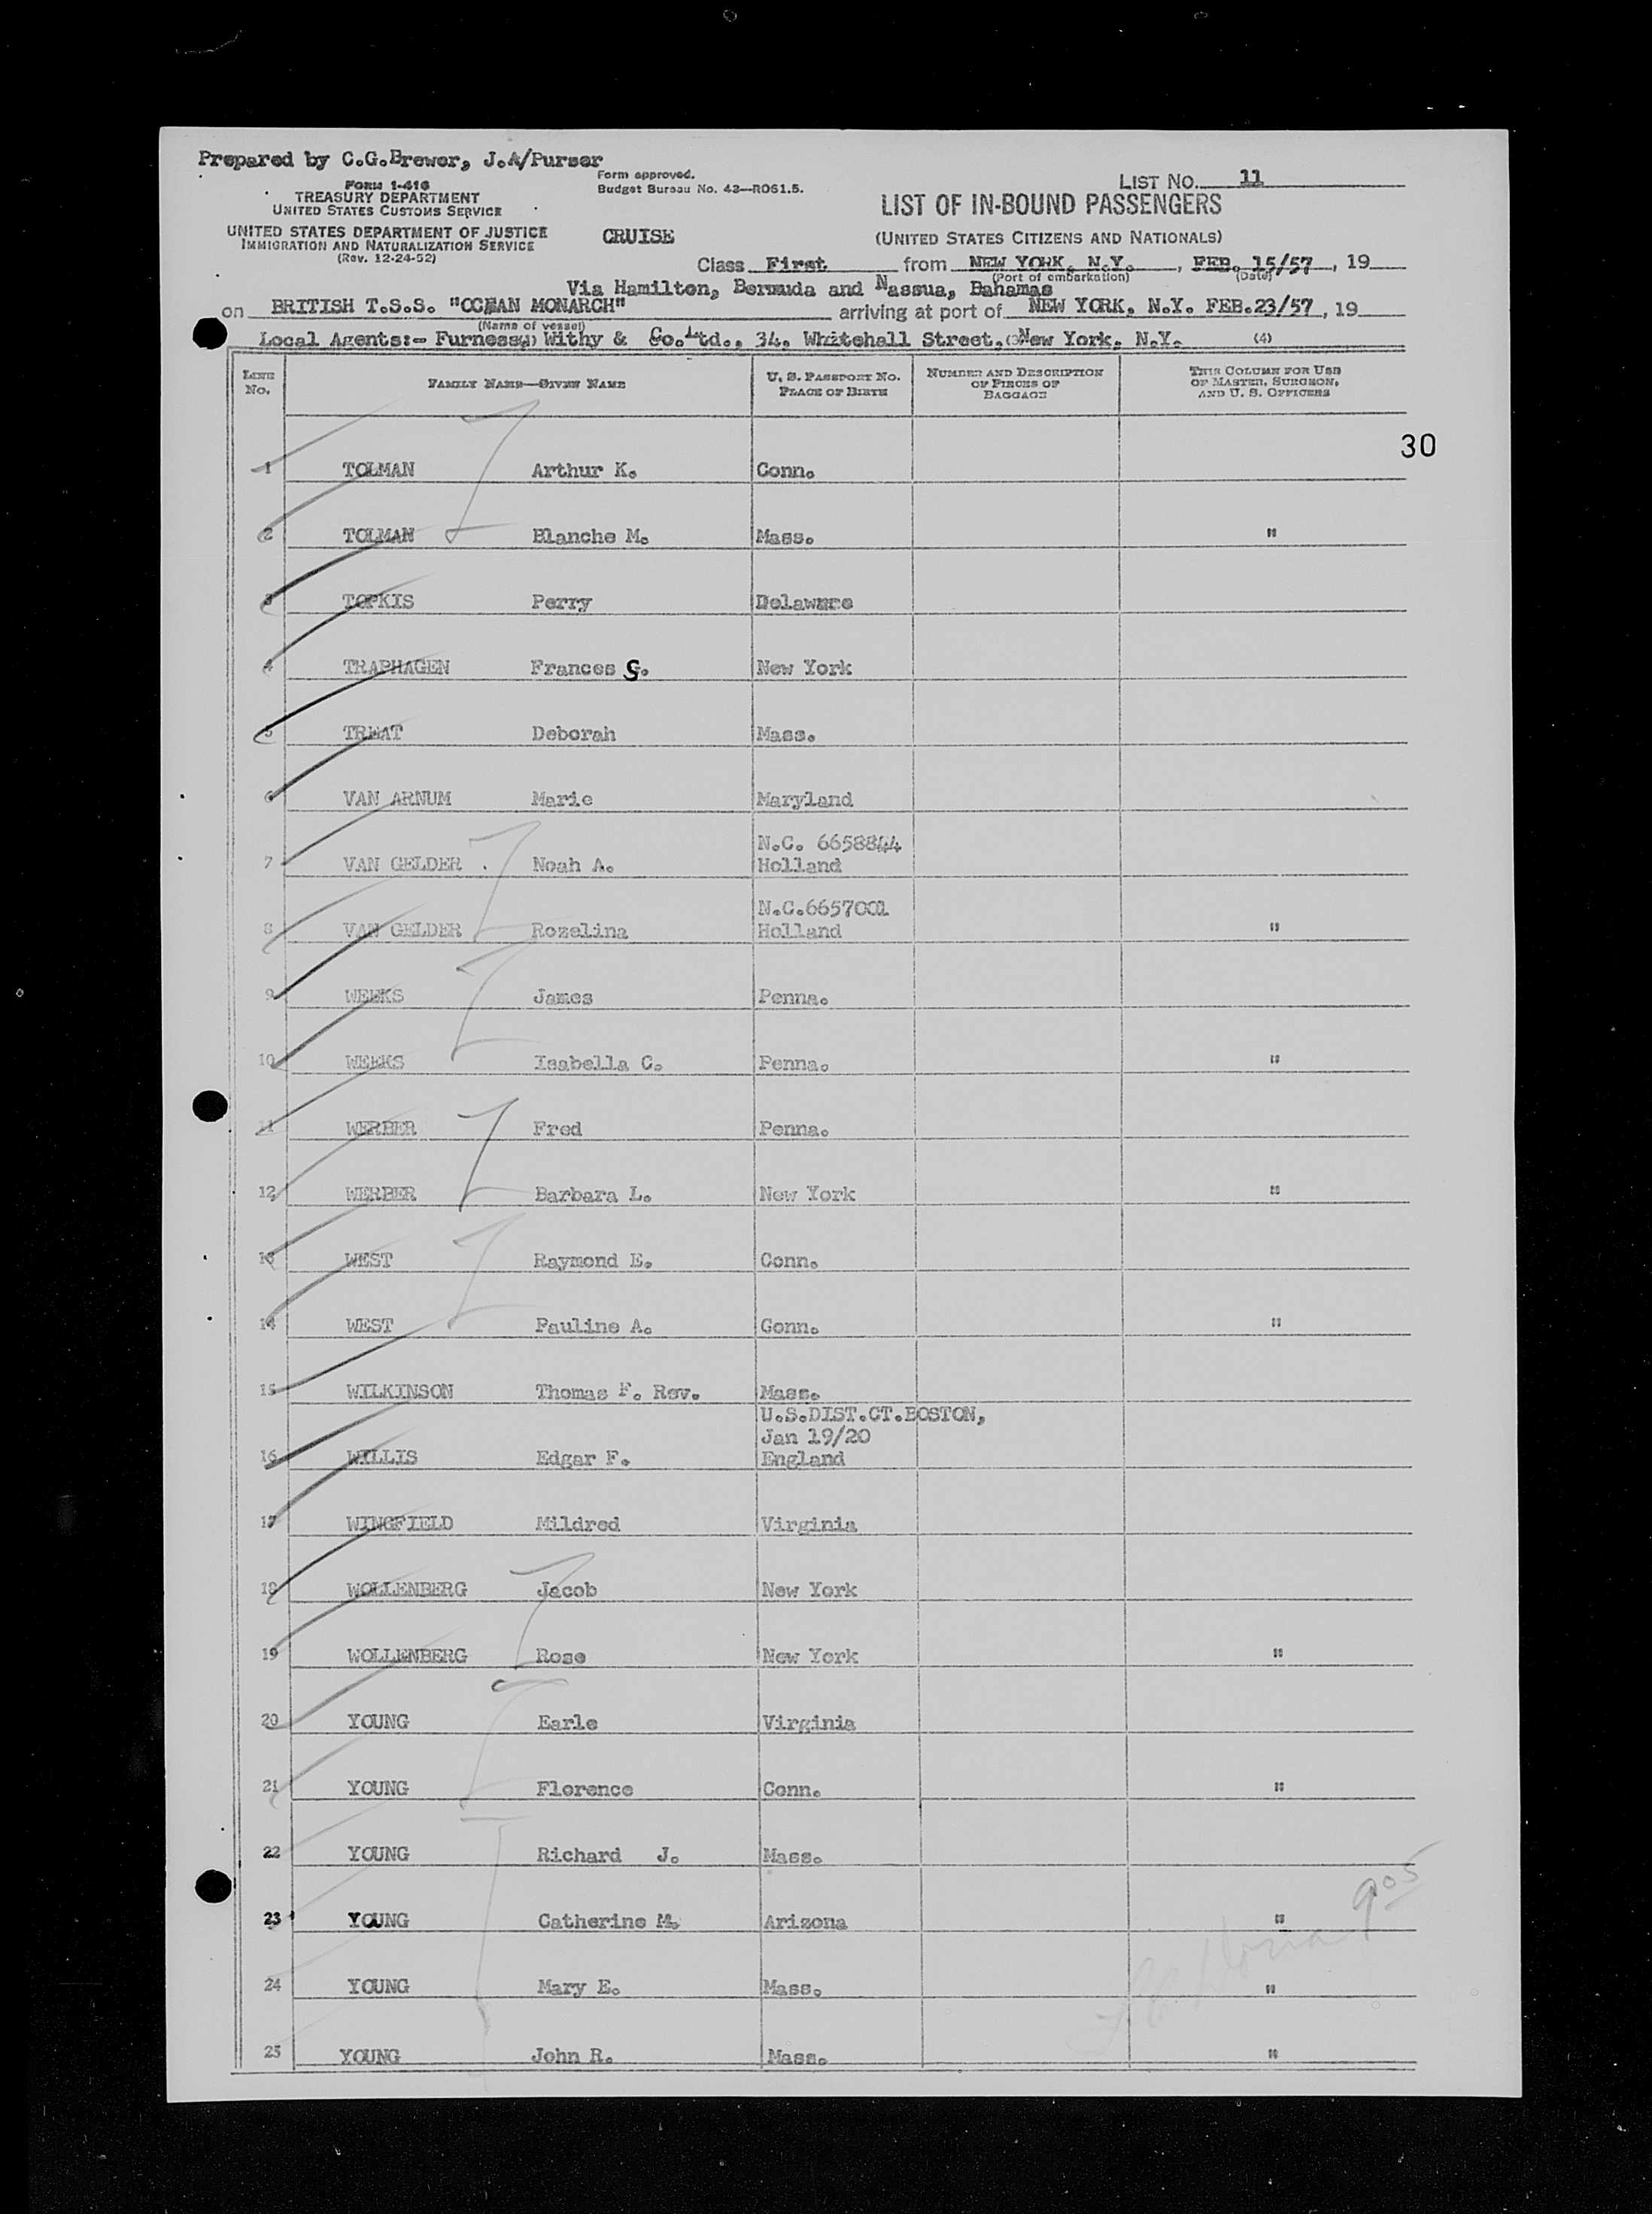 Prepared by C.G.Brewer, J.A/Purser
Form approved.
Budget Bureau No. 43—R061.5.
FORM I-416
TREASURY DEPARTMENT
UNITED STATES CUSTOMS SERVICE
UNITED STATES DEPARTMENT OF JUSTICE
IMMIGRATION AND NATURALIZATION SERVICE
(Rev. 12-24-52)
CRUISE
LIST NO. 11
LIST OF IN-BOUND PASSENGERS
(UNITED STATES CITIZENS AND NATIONALS)
Class First from NEW YORK, N.Y., FEB. 15/57, 19
(Port of embarkation) (Date)
Via Hamilton, Bermuda and Nassua, Bahamas
on BRITISH T.S.S. "OCEAN MONARCH" arriving at port of NEW YORK, N.Y. FEB.23/57, 19
(Name of vessel)
Local Agents:- Furness, Withy & Co. Ltd., 34, Whitehall Street, New York, N.Y.
(3) (4)
LINE No. FAMILY NAME—GIVEN NAME U. S. PASSPORT NO. PLACE OF BIRTH NUMBER AND DESCRIPTION OF PIECES OF BAGGAGE THIS COLUMN FOR USE OF MASTER, SURGEON, AND U. S. OFFICERS
30
1 TOLMAN Arthur K. Conn.
2 TOLMAN Blanche M. Mass. "
3 TOPKIS Perry Delaware
4 TRAPHAGEN Frances G. New York
5 TREAT Deborah Mass.
6 VAN ARNUM Marie Maryland
N.C. 6658844
7 VAN GELDER Noah A. Holland
N.C.6657001
8 VAN GELDER Rozelina Holland "
9 WEEKS James Penna.
10 WEEKS Isabella C. Penna. "
11 WERBER Fred Penna.
12 WERBER Barbara L. New York "
13 WEST Raymond E. Conn.
14 WEST Pauline A. Conn. "
15 WILKINSON Thomas F. Rev. Mass.
U.S.DIST.CT.BOSTON,
Jan 19/20
16 WILLIS Edgar F. England
17 WINGFIELD Mildred Virginia
18 WOLLENBERG Jacob New York
19 WOLLENBERG Rose New York "
20 YOUNG Earle Virginia
21 YOUNG Florence Conn. "
22 YOUNG Richard J. Mass.
905
23 YOUNG Catherine M. Arizona "
24 YOUNG Mary E. Mass. "
25 YOUNG John R. Mass. "